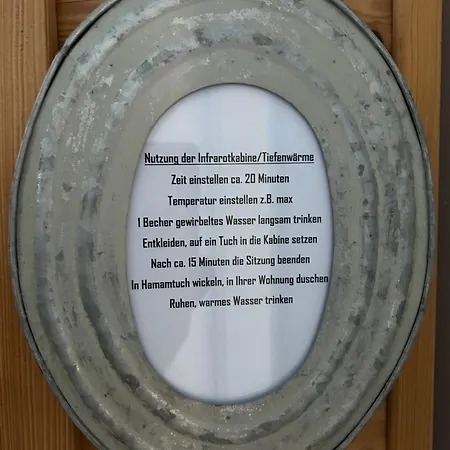 Nutzung der Infrarotkabine/Tiefenwärme
Zeit einstellen ca. 20 Minuten
Temperatur einstellen z.B. max
1 Becher gewirbeltes Wasser langsam trinken
Entkleiden, auf ein Tuch in die Kabine setzen
Nach ca. 15 Minuten die Sitzung beenden
In Hamamtuch wickeln, in Ihrer Wohnung duschen
Ruhen, warmes Wasser trinken